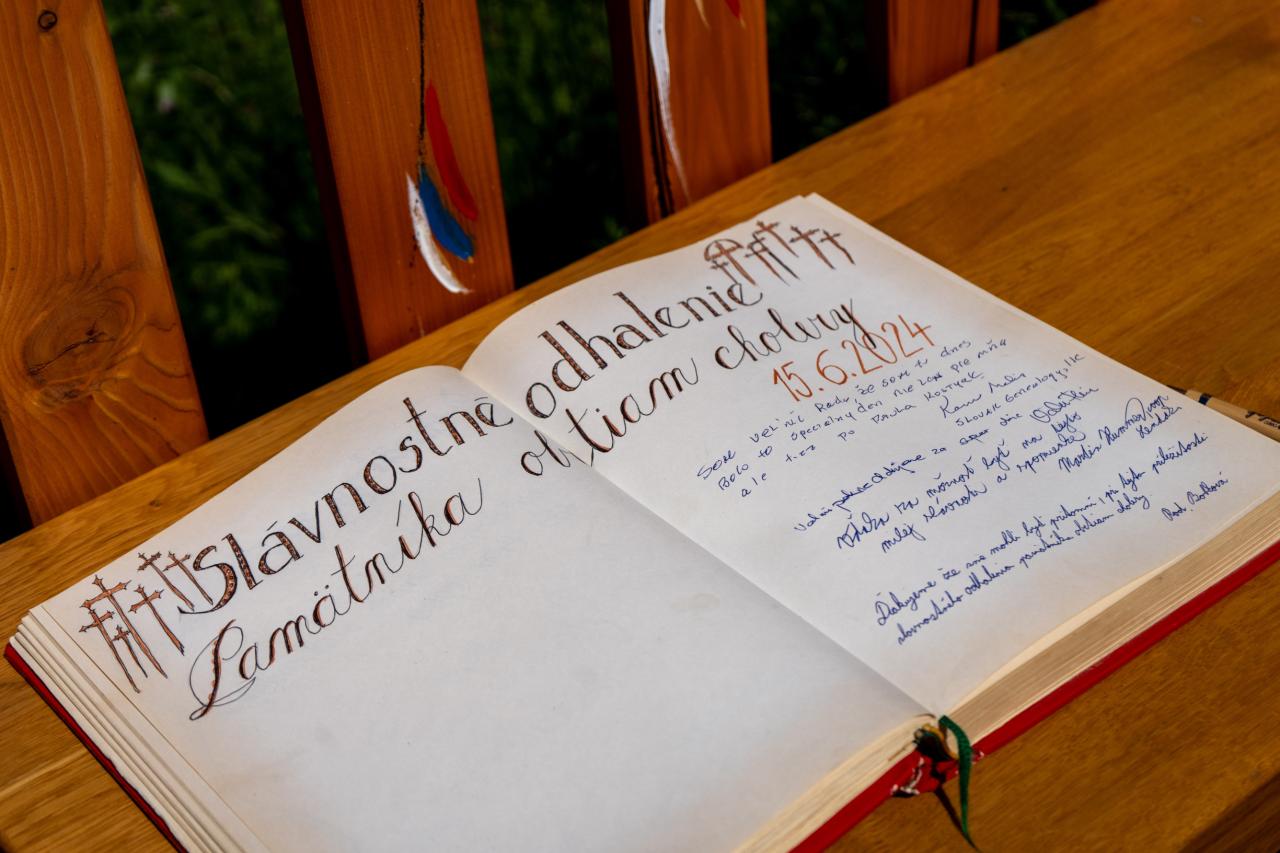 Slávnostné odhalenie
Pamätníka obetiam cholery
15.6.2024
SOM VEĽMI RADA ŽE SOM TU DNES
BOLO TO ŠPECIÁLNY DEŇ NIE LEN PRE MŇA
ALE TIEŽ PO
SLOVAK GENEALOGY, LLC
Vďaka za možnosť byť na tejto
milej slávnosti a spomienke
Ďakujeme že sme mohli byť prítomní i pri tejto príležitosti
slavnostného odhalenia pamätníka obetiam cholery.